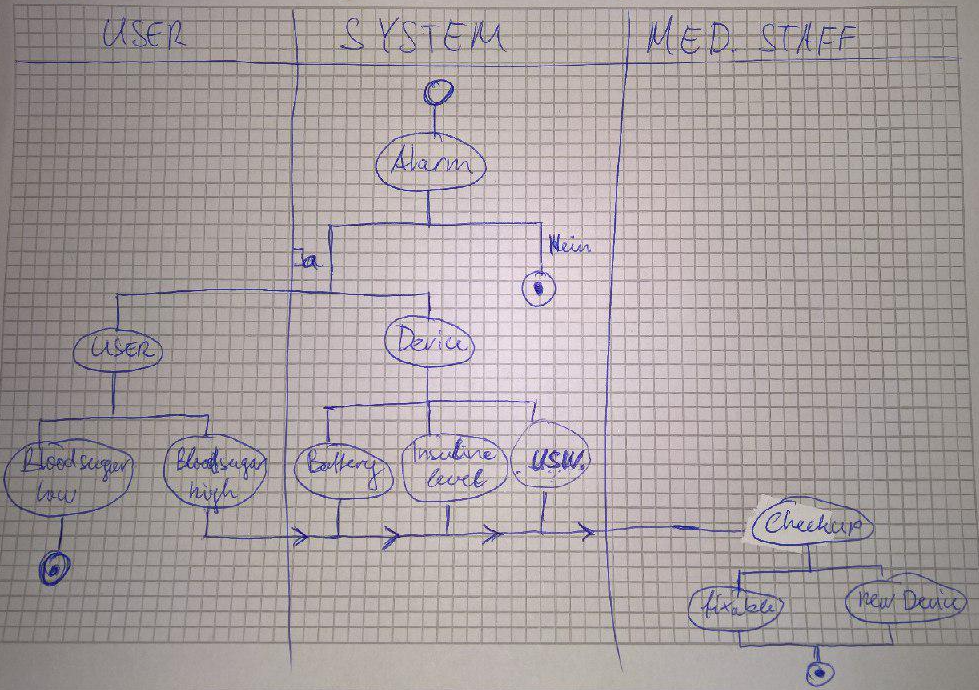 USER
SYSTEM
MED. STAFF
Alarm
Ja
Nein
USER
Device
Bloodsugar
low
Bloodsugar
high
Battery
Insuline
level
usw.
Checkup
fixable
new Device